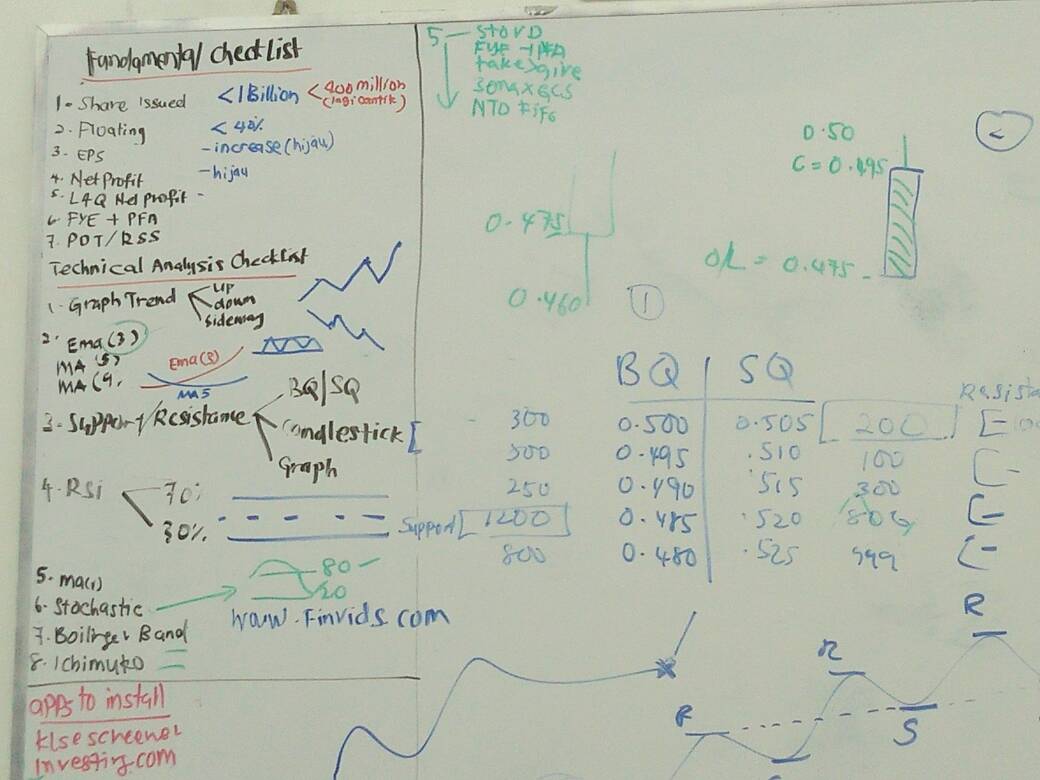 Fundamental Checklist
1- Share Issued <1Billion <400million
(lagi cantik)
2. Floating <40%
3. EPS -increase(hijau)
4. Net Profit -hijau
5. L4Q Net profit -
6- FYE + PFA
7. POT/RSS
Technical Analysis Checklist
1. Graph Trend up
down
sideway
2. Ema(3)
MA(5)
MA(9,
Ema(3)
MA5
3. Support/Resistance BQ/SQ
Candlestick [
Graph
4. RSi 70%
30%
5. ma(1)
6. Stochastic 80
20
www.Finvids.com
7. Boilinger Band
8. Ichimuko
apps to install
klse screener
investing.com
5
FYE → PFA
take>give
0.50
C=0.495
0.475
0.460
O/L = 0.475
1
2
BQ SQ
300 0.500 0.505 200
500 0.495 .510 100
250 0.490 .515 300
Support 1200 0.485 .520
800 0.480 .525 999
R
R
R
S